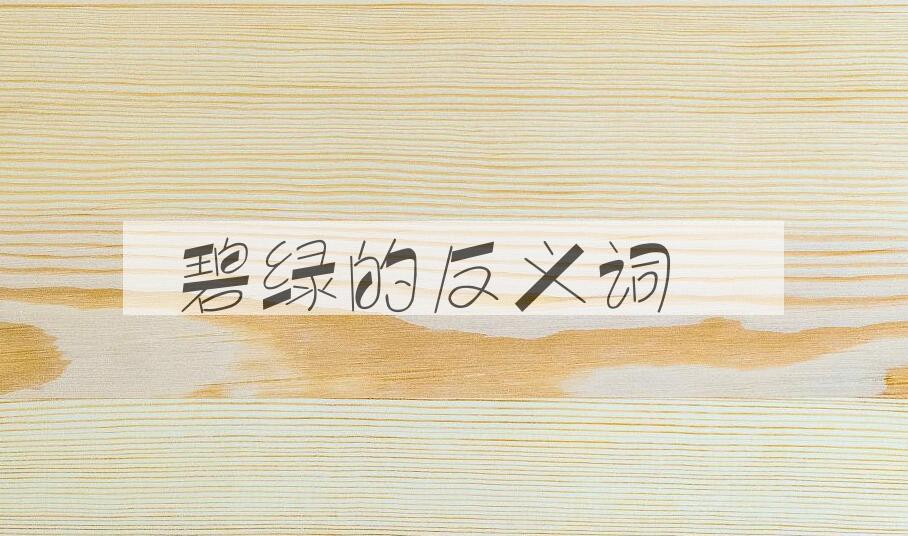 碧绿的反义词